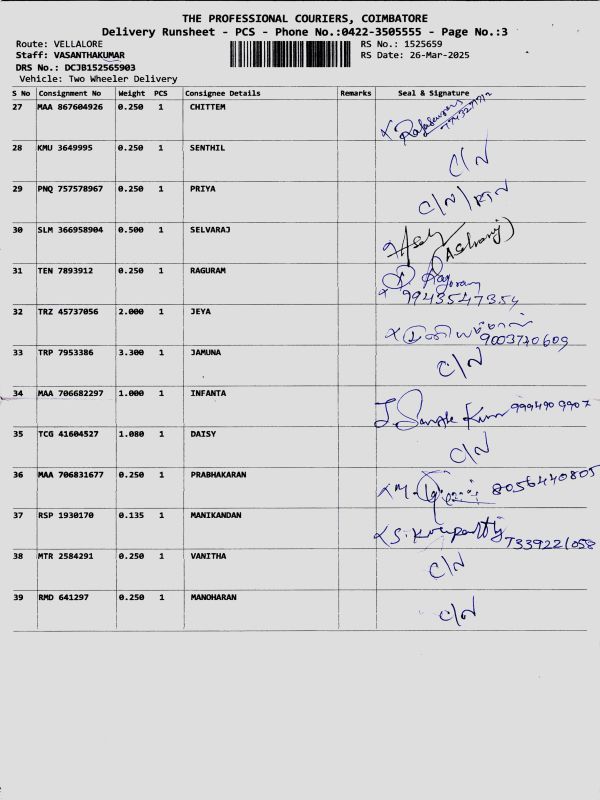 THE PROFESSIONAL COURIERS, COIMBATORE
Delivery Runsheet - PCS - Phone No.:0422-3505555 - Page No.:3
Route: VELLALORE RS No.: 1525659
Staff: VASANTHAKUMAR RS Date: 26-Mar-2025
DRS No.: DCJB152565903
Vehicle: Two Wheeler Delivery
S No Consignment No Weight PCS Consignee Details Remarks Seal & Signature
27 MAA 867604926 0.250 1 CHITTEM
28 KMU 3649995 0.250 1 SENTHIL C/N
29 PNQ 757578967 0.250 1 PRIYA C/N/
30 SLM 366958904 0.500 1 SELVARAJ
31 TEN 7893912 0.250 1 RAGURAM
9943547354
32 TRZ 45737056 2.000 1 JEYA 9003770609
33 TRP 7953386 3.300 1 JAMUNA C/N
34 MAA 706682297 1.000 1 INFANTA 9994909907
35 TCG 41604527 1.080 1 DAISY C/N
36 MAA 706831677 0.250 1 PRABHAKARAN 8056440805
37 RSP 1930170 0.135 1 MANIKANDAN 7339221058
38 MTR 2584291 0.250 1 VANITHA C/N
39 RMD 641297 0.250 1 MANOHARAN C/N